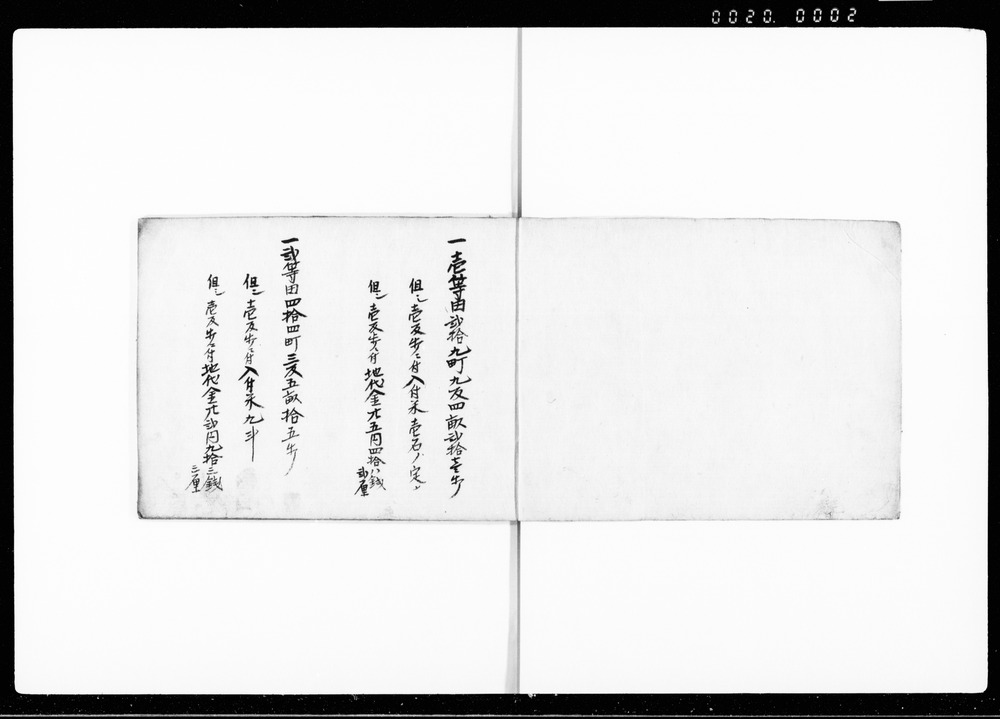 0020. 0002
一壱等田弐拾九町九反四畝弐拾壱歩
但シ壱反歩ニ付入付米壱石ノ定
但シ壱反歩ニ付地代金廿五円四拾八銭
弐厘
一弐等田四拾四町三反五畝拾五歩
但シ壱反歩ニ付入付米九斗
但シ壱反歩ニ付地代金廿弐円九拾三銭
三厘